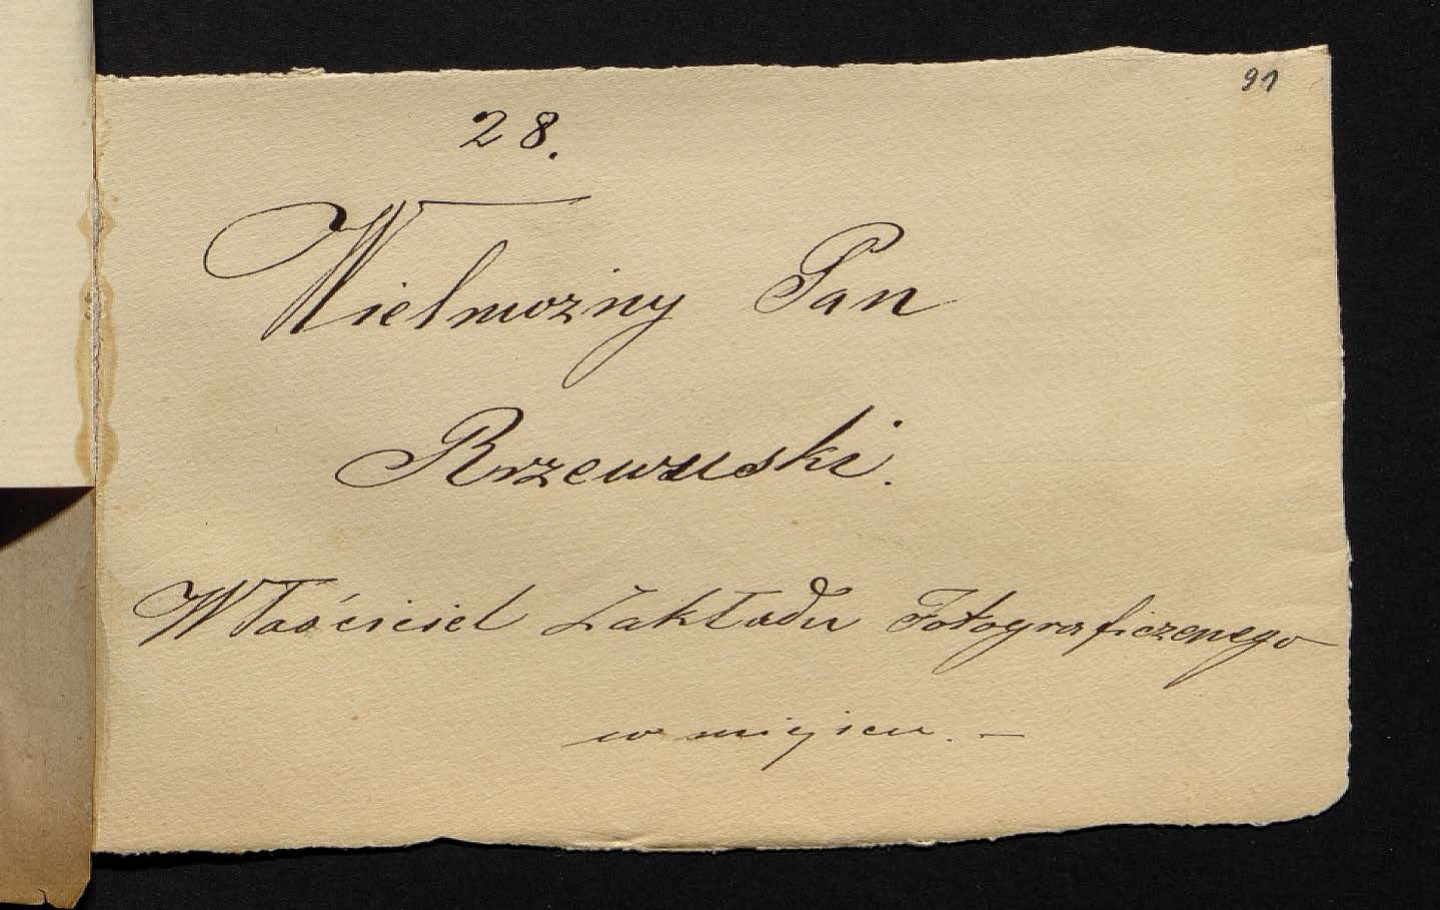 91
28.
Wielmożny Pan
Rzewuski.
Właściciel Zakładu Fotograficzenego
w miejscu. —